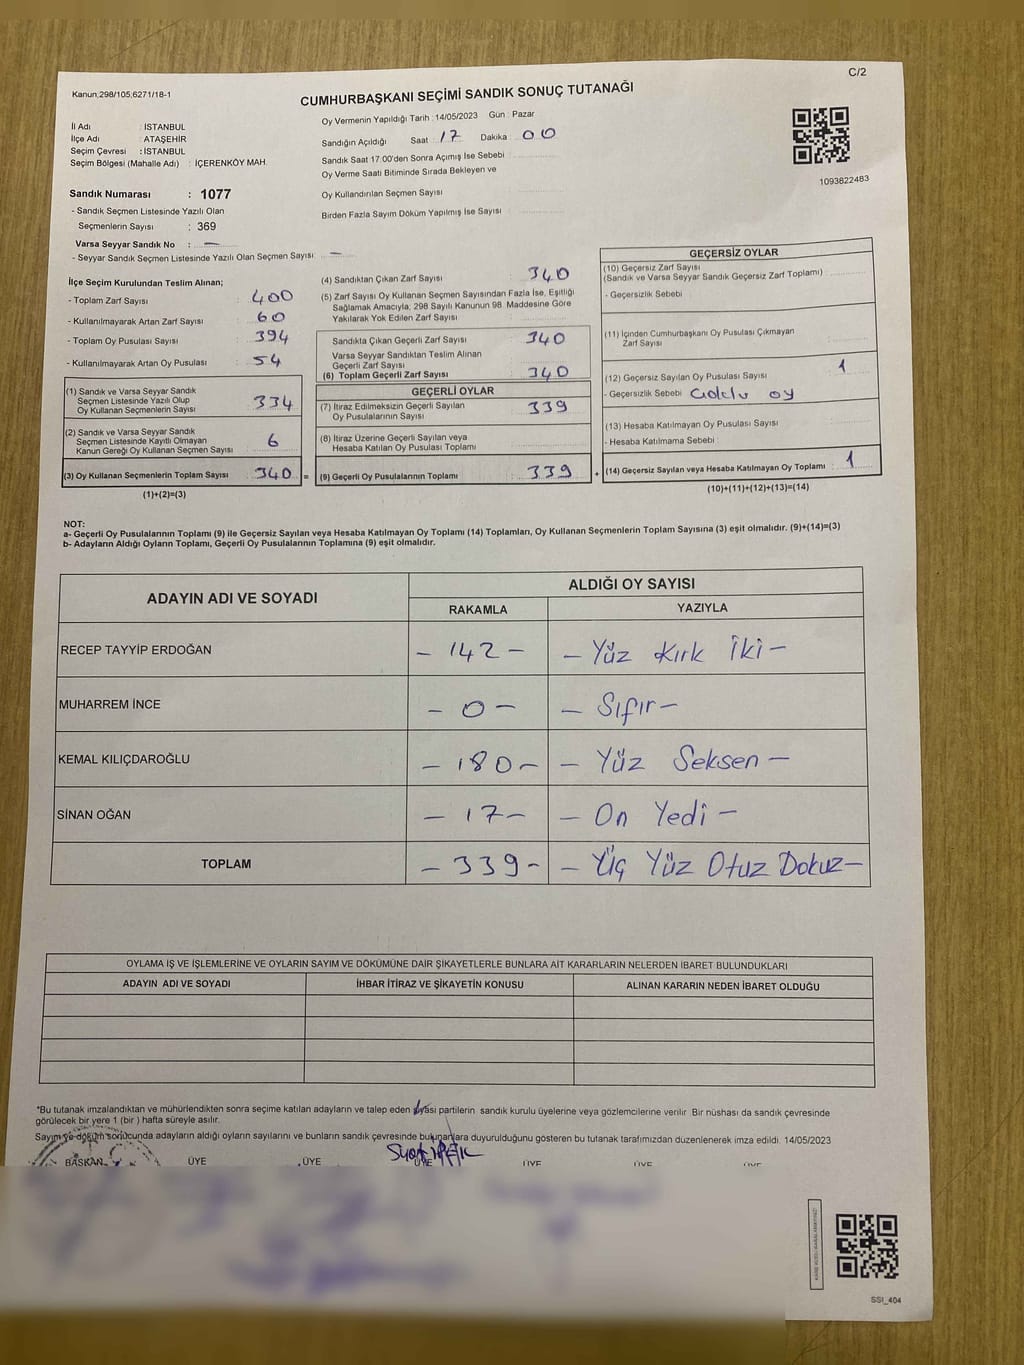 C/2
Kanun;298/105;6271/18-1
CUMHURBAŞKANI SEÇİMİ SANDIK SONUÇ TUTANAĞI
İl Adı : İSTANBUL
İlçe Adı : ATAŞEHİR
Seçim Çevresi : İSTANBUL
Seçim Bölgesi (Mahalle Adı) : İÇERENKÖY MAH.
Oy Vermenin Yapıldığı Tarih :14/05/2023 Gün : Pazar
Sandığın Açıldığı Saat 17 Dakika 00
Sandık Saat 17.00'den Sonra Açımış İse Sebebi :
Oy Verme Saati Bitiminde Sırada Bekleyen ve
Oy Kullandırılan Seçmen Sayısı :
Birden Fazla Sayım Döküm Yapılmış İse Sayısı :
1093822483
Sandık Numarası : 1077
- Sandık Seçmen Listesinde Yazılı Olan
Seçmenlerin Sayısı : 369
Varsa Seyyar Sandık No : —
- Seyyar Sandık Seçmen Listesinde Yazılı Olan Seçmen Sayısı: —
İlçe Seçim Kurulundan Teslim Alınan;
- Toplam Zarf Sayısı : 400
- Kullanılmayarak Artan Zarf Sayısı : 60
- Toplam Oy Pusulası Sayısı : 394
- Kullanılmayarak Artan Oy Pusulası : 54
(1) Sandık ve Varsa Seyyar Sandık
Seçmen Listesinde Yazılı Olup
Oy Kullanan Seçmenlerin Sayısı : 334
(2) Sandık ve Varsa Seyyar Sandık
Seçmen Listesinde Kayıtlı Olmayan
Kanun Gereği Oy Kullanan Seçmen Sayısı : 6
(3) Oy Kullanan Seçmenlerin Toplam Sayısı : 340 =
(1)+(2)=(3)
(4) Sandıktan Çıkan Zarf Sayısı : 340
(5) Zarf Sayısı Oy Kullanan Seçmen Sayısından Fazla İse, Eşitliği
Sağlamak Amacıyla; 298 Sayılı Kanunun 98. Maddesine Göre
Yakılarak Yok Edilen Zarf Sayısı :
Sandıkta Çıkan Geçerli Zarf Sayısı : 340
Varsa Seyyar Sandıktan Teslim Alınan
Geçerli Zarf Sayısı :
(6) Toplam Geçerli Zarf Sayısı : 340
GEÇERLİ OYLAR
(7) İtiraz Edilmeksizin Geçerli Sayılan
Oy Pusulalarının Sayısı : 339
(8) İtiraz Üzerine Geçerli Sayılan veya
Hesaba Katılan Oy Pusulası Toplamı :
(9) Geçerli Oy Pusulalarının Toplamı : 339 +
GEÇERSİZ OYLAR
(10) Geçersiz Zarf Sayısı
(Sandık ve Varsa Seyyar Sandık Geçersiz Zarf Toplamı) :
- Geçersizlik Sebebi :
(11) İçinden Cumhurbaşkanı Oy Pusulası Çıkmayan
Zarf Sayısı :
(12) Geçersiz Sayılan Oy Pusulası Sayısı : 1
- Geçersizlik Sebebi : oy
(13) Hesaba Katılmayan Oy Pusulası Sayısı :
- Hesaba Katılmama Sebebi :
(14) Geçersiz Sayılan veya Hesaba Katılmayan Oy Toplamı : 1
(10)+(11)+(12)+(13)=(14)
NOT:
a- Geçerli Oy Pusulalarının Toplamı (9) ile Geçersiz Sayılan veya Hesaba Katılmayan Oy Toplamı (14) Toplamları, Oy Kullanan Seçmenlerin Toplam Sayısına (3) eşit olmalıdır. (9)+(14)=(3)
b- Adayların Aldığı Oyların Toplamı, Geçerli Oy Pusulalarının Toplamına (9) eşit olmalıdır.
ADAYIN ADI VE SOYADI
ALDIĞI OY SAYISI
RAKAMLA YAZIYLA
RECEP TAYYİP ERDOĞAN – 142 – – Yüz Kırk İki –
MUHARREM İNCE – 0 – – Sıfır –
KEMAL KILIÇDAROĞLU – 180 – – Yüz Seksen –
SİNAN OĞAN – 17 – – On Yedi –
TOPLAM – 339 – – Üç Yüz Otuz Dokuz –
OYLAMA İŞ VE İŞLEMLERİNE VE OYLARIN SAYIM VE DÖKÜMÜNE DAİR ŞİKAYETLERLE BUNLARA AİT KARARLARIN NELERDEN İBARET BULUNDUKLARI
ADAYIN ADI VE SOYADI İHBAR İTİRAZ VE ŞİKAYETİN KONUSU ALINAN KARARIN NEDEN İBARET OLDUĞU
*Bu tutanak imzalandıktan ve mühürlendikten sonra seçime katılan adayların ve talep eden siyasi partilerin sandık kurulu üyelerine veya gözlemcilerine verilir. Bir nüshası da sandık çevresinde
görülecek bir yere 1 (bir) hafta süreyle asılır.
Sayım ve döküm sonucunda adayların aldığı oyların sayılarını ve bunların sandık çevresinde bulunanlara duyurulduğunu gösteren bu tutanak tarafımızdan düzenlenerek imza edildi. 14/05/2023
BAŞKAN ÜYE ÜYE ÜYE ÜYE ÜYE ÜYE
SSI_404